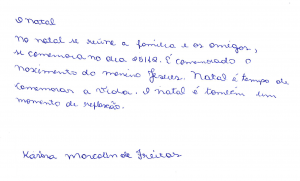 O natal
No natal se reúne a familia e os amigos,
se comemora no dia 25/12. É comemorado o
nascimento do menino Jesus. Natal é tempo de
comemorar a vida. O natal é também um
momento de reflexão.
Karina Marcolin de Freitas